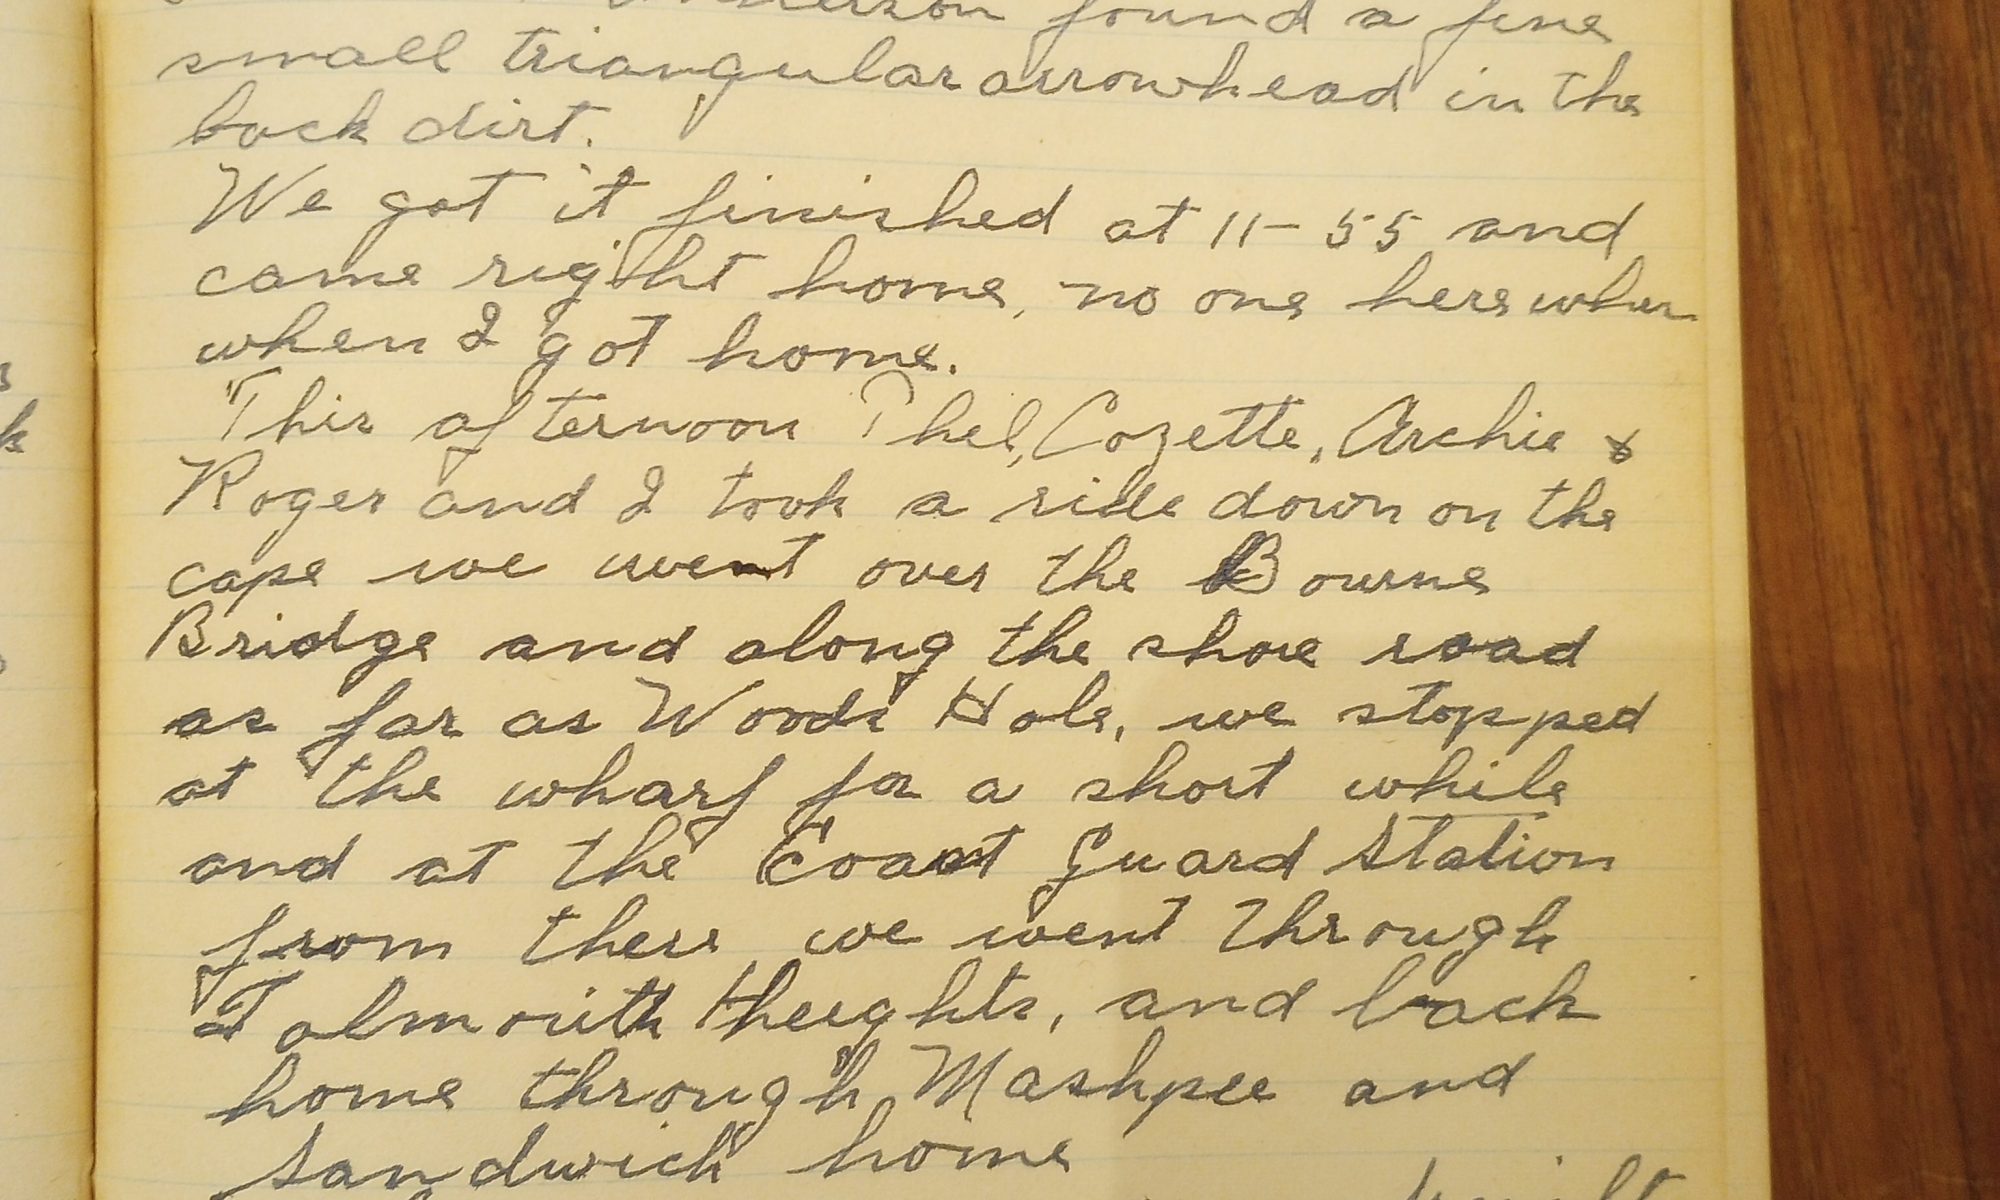 found a fine
small triangular arrowhead in the
back dirt.
We got it finished at 11-55 and
came right home, no one here when
when I got home.
This afternoon Phel, Cozette, Archie &
Roger and I took a ride down on the
cape we went over the Bourne
Bridge and along the shore road
as far as Woods Hole, we stopped
at the wharf for a short while
and at the Coast Guard Station
from there we went through
Falmouth Heights, and back
home through Mashpee and
Sandwich home